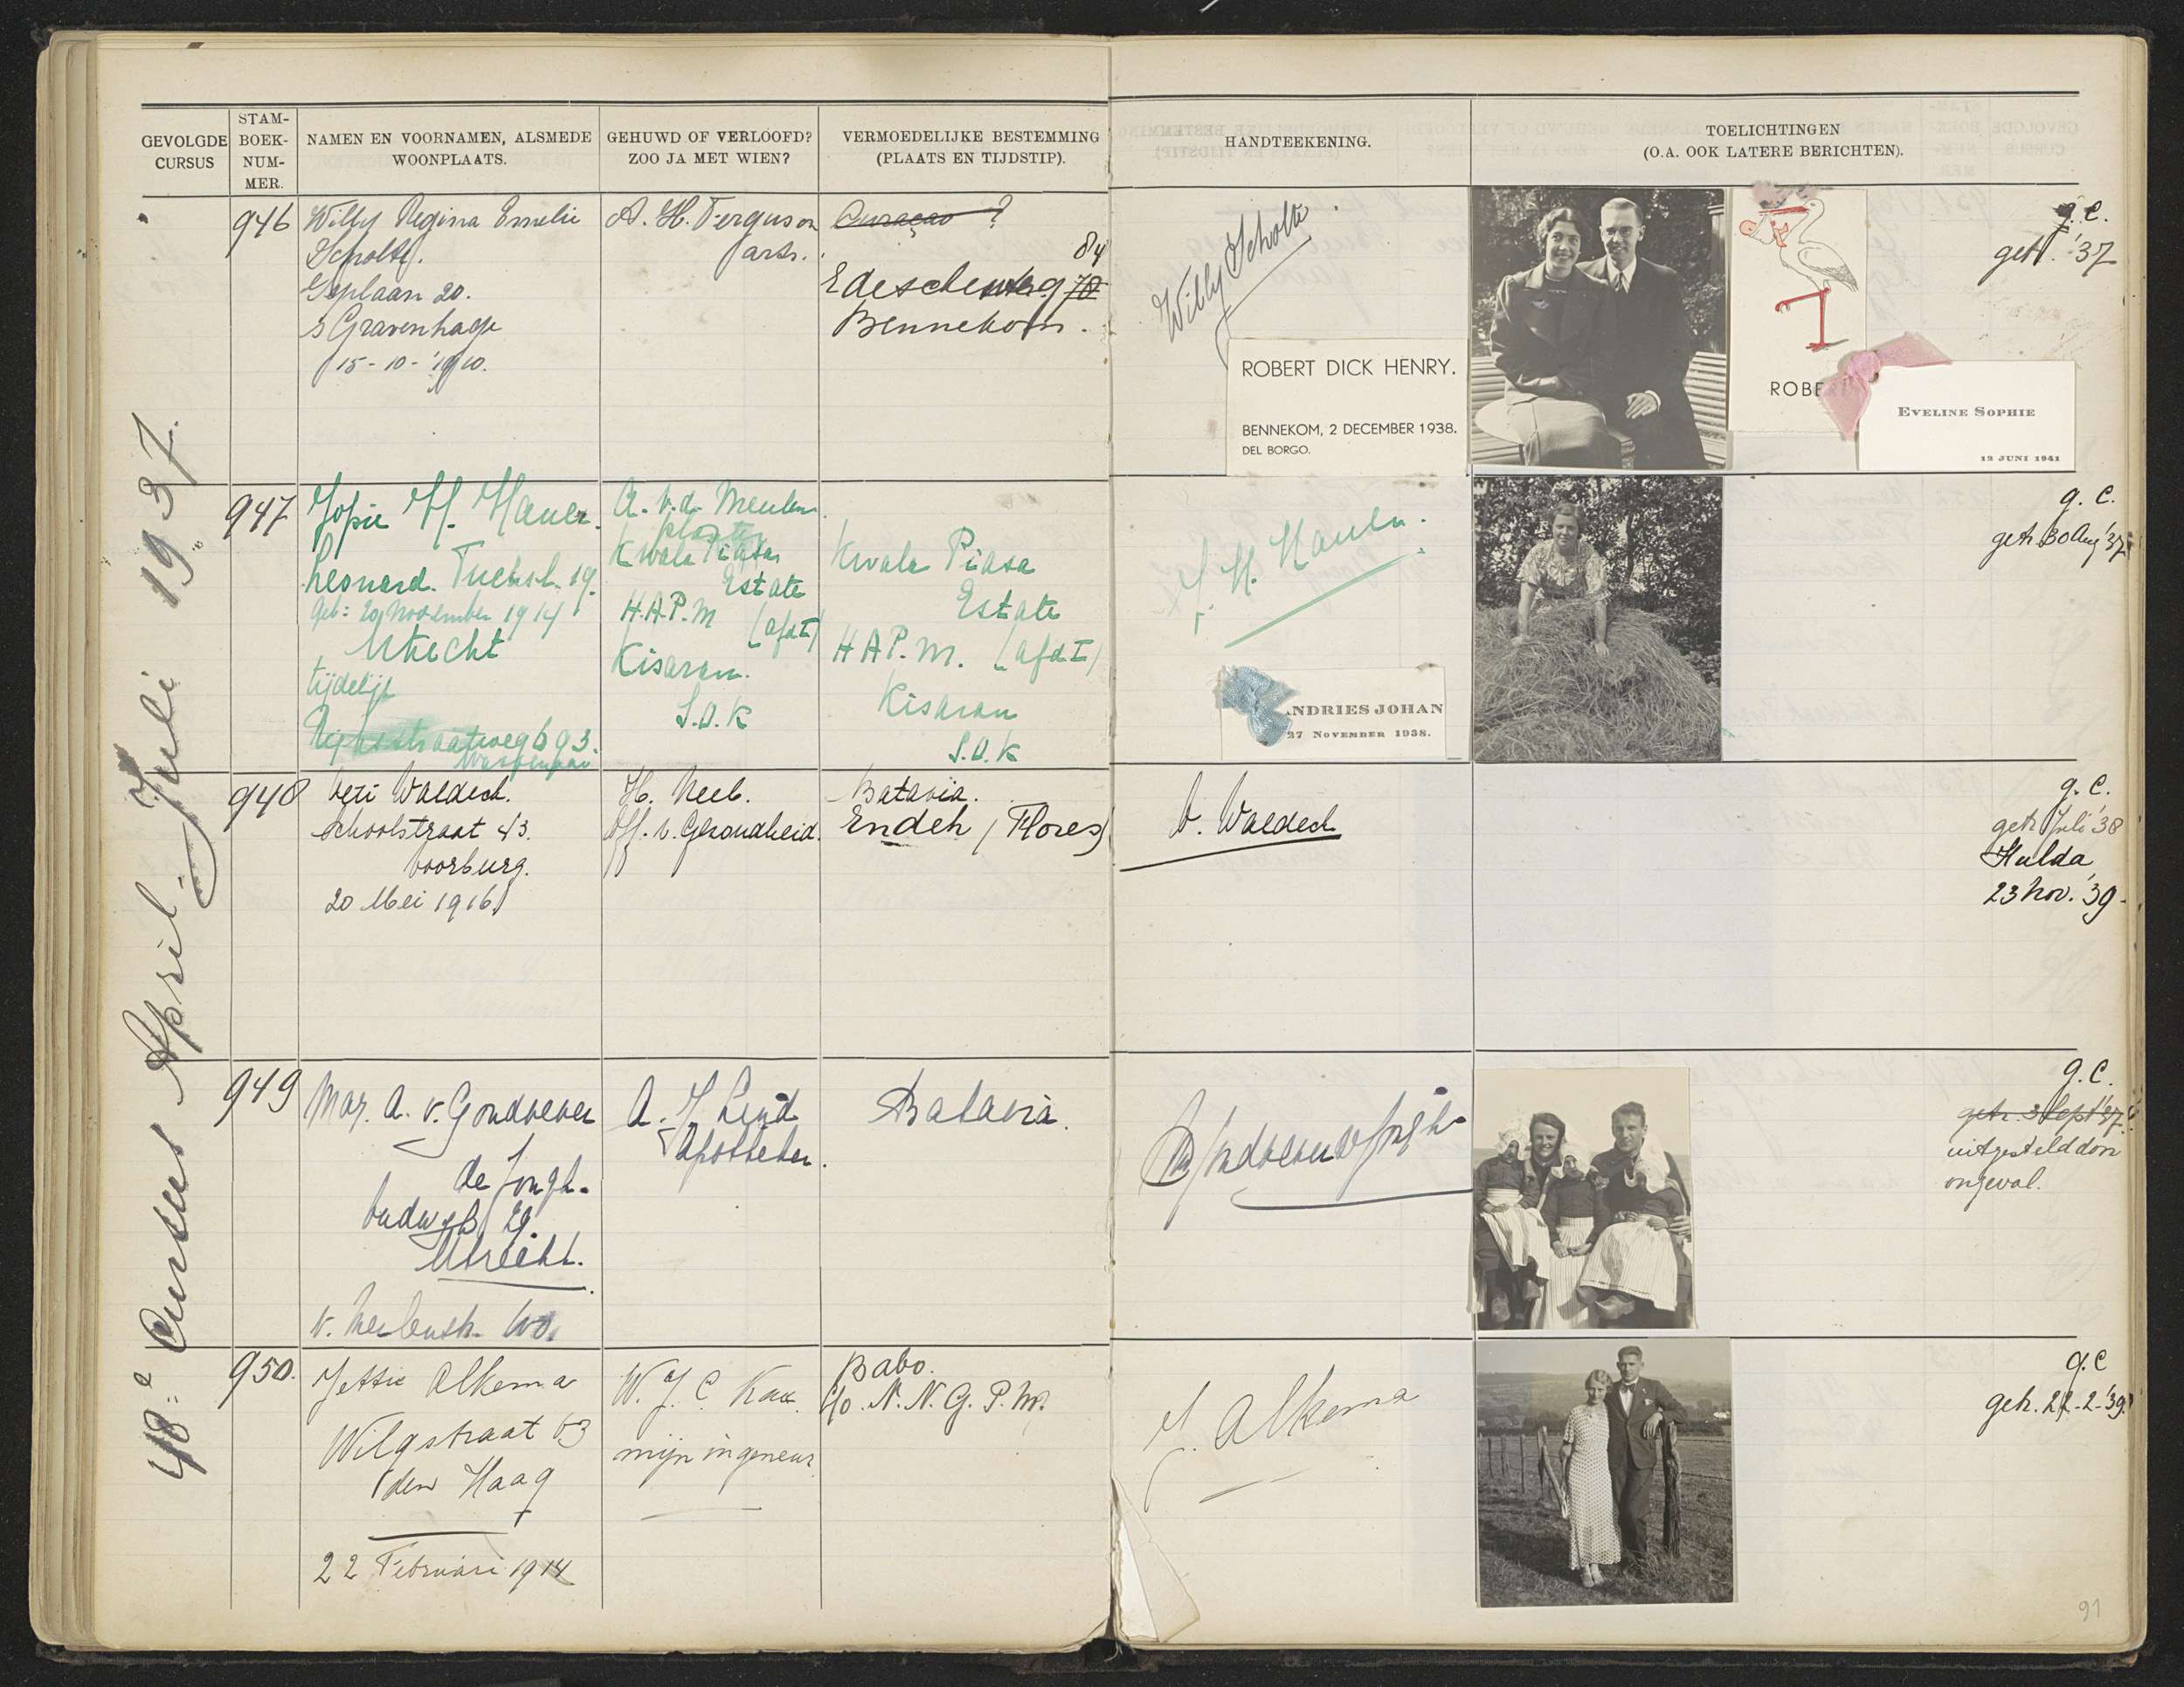 GEVOLGDE
CURSUS
STAM-
BOEK-
NUM-
MER.
NAMEN EN VOORNAMEN, ALSMEDE
WOONPLAATS.
GEHUWD OF VERLOOFD?
ZOO JA MET WIEN?
VERMOEDELIJKE BESTEMMING
(PLAATS EN TIJDSTIP).
HANDTEEKENING.
TOELICHTINGEN
(O.A. OOK LATERE BERICHTEN).
48e Cursus April - Juli 1937.
946
Willy Regina Emelie
Scholte.
20.
's Gravenhage
15-10-'10.
A. H. Ferguson
arts.
Curaçao ?
84
Edescheweg 78
Bennekom.
Willy Scholte
ROBERT DICK HENRY.
BENNEKOM, 2 DECEMBER 1938.
DEL BORGO.
EVELINE SOPHIE
12 JUNI 1941
g.C.
getr. '37
947
Jopie H. Hauer.
Leonard. 19.
Geb: 29 November 1914
Utrecht
tijdelijk
Rijksstraatweg 693.
Wassenaar
A. v.d. Meulen.
planter
Kwala Piasa
Estate
H.A.P.M (afd I)
Kisaran.
S.O.K
Kwala Piasa
Estate
H A P. M. (afd I)
Kisaran
S.O.K
J. H. Hauer.
ANDRIES JOHAN
27 NOVEMBER 1938.
g.C.
getr. 30 Aug '37
948
Waldeck.
Schoolstraat 43.
Voorburg.
20 Mei 1916
H. Neeb.
Off. v. Gezondheid.
Batavia.
Endeh (Flores)
V. Waldeck
g.C.
getr. Juli '38
Hulda
23 Nov. '39.
949
Mar. A. v. Goudoever
de Jongh.
29.
Utrecht.
A. J.
Apotheker.
Batavia.
g.C.
getr. 3 Sept '37
uitgesteld door
ongeval.
950.
Jettie Alkema
Wilgstraat 63
den Haag
22 Februari 1914
W. J. C.
mijningenieur
Babo.
c/o. N.N.G.P.M.
J. Alkema
g.C
getr. 22-2-'39.
91